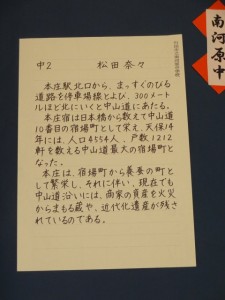 中2 松田奈々
本庄駅北口から、まっすぐのびる
道路を停車場線とよび、300メート
ルほど北にいくと中山道にあたる。
本庄宿は日本橋から数えて中山道
10番目の宿場町として栄え、天保14
年には、人口4554人、戸数1212
軒を数える中山道最大の宿場町と
なった。
本庄は、宿場町から養蚕の町とし
て繁栄し、それに伴い、現在でも
中山道沿いには、商家の資産を火災
からまもる蔵や、近代化遺産が残さ
れているのである。
南河原中